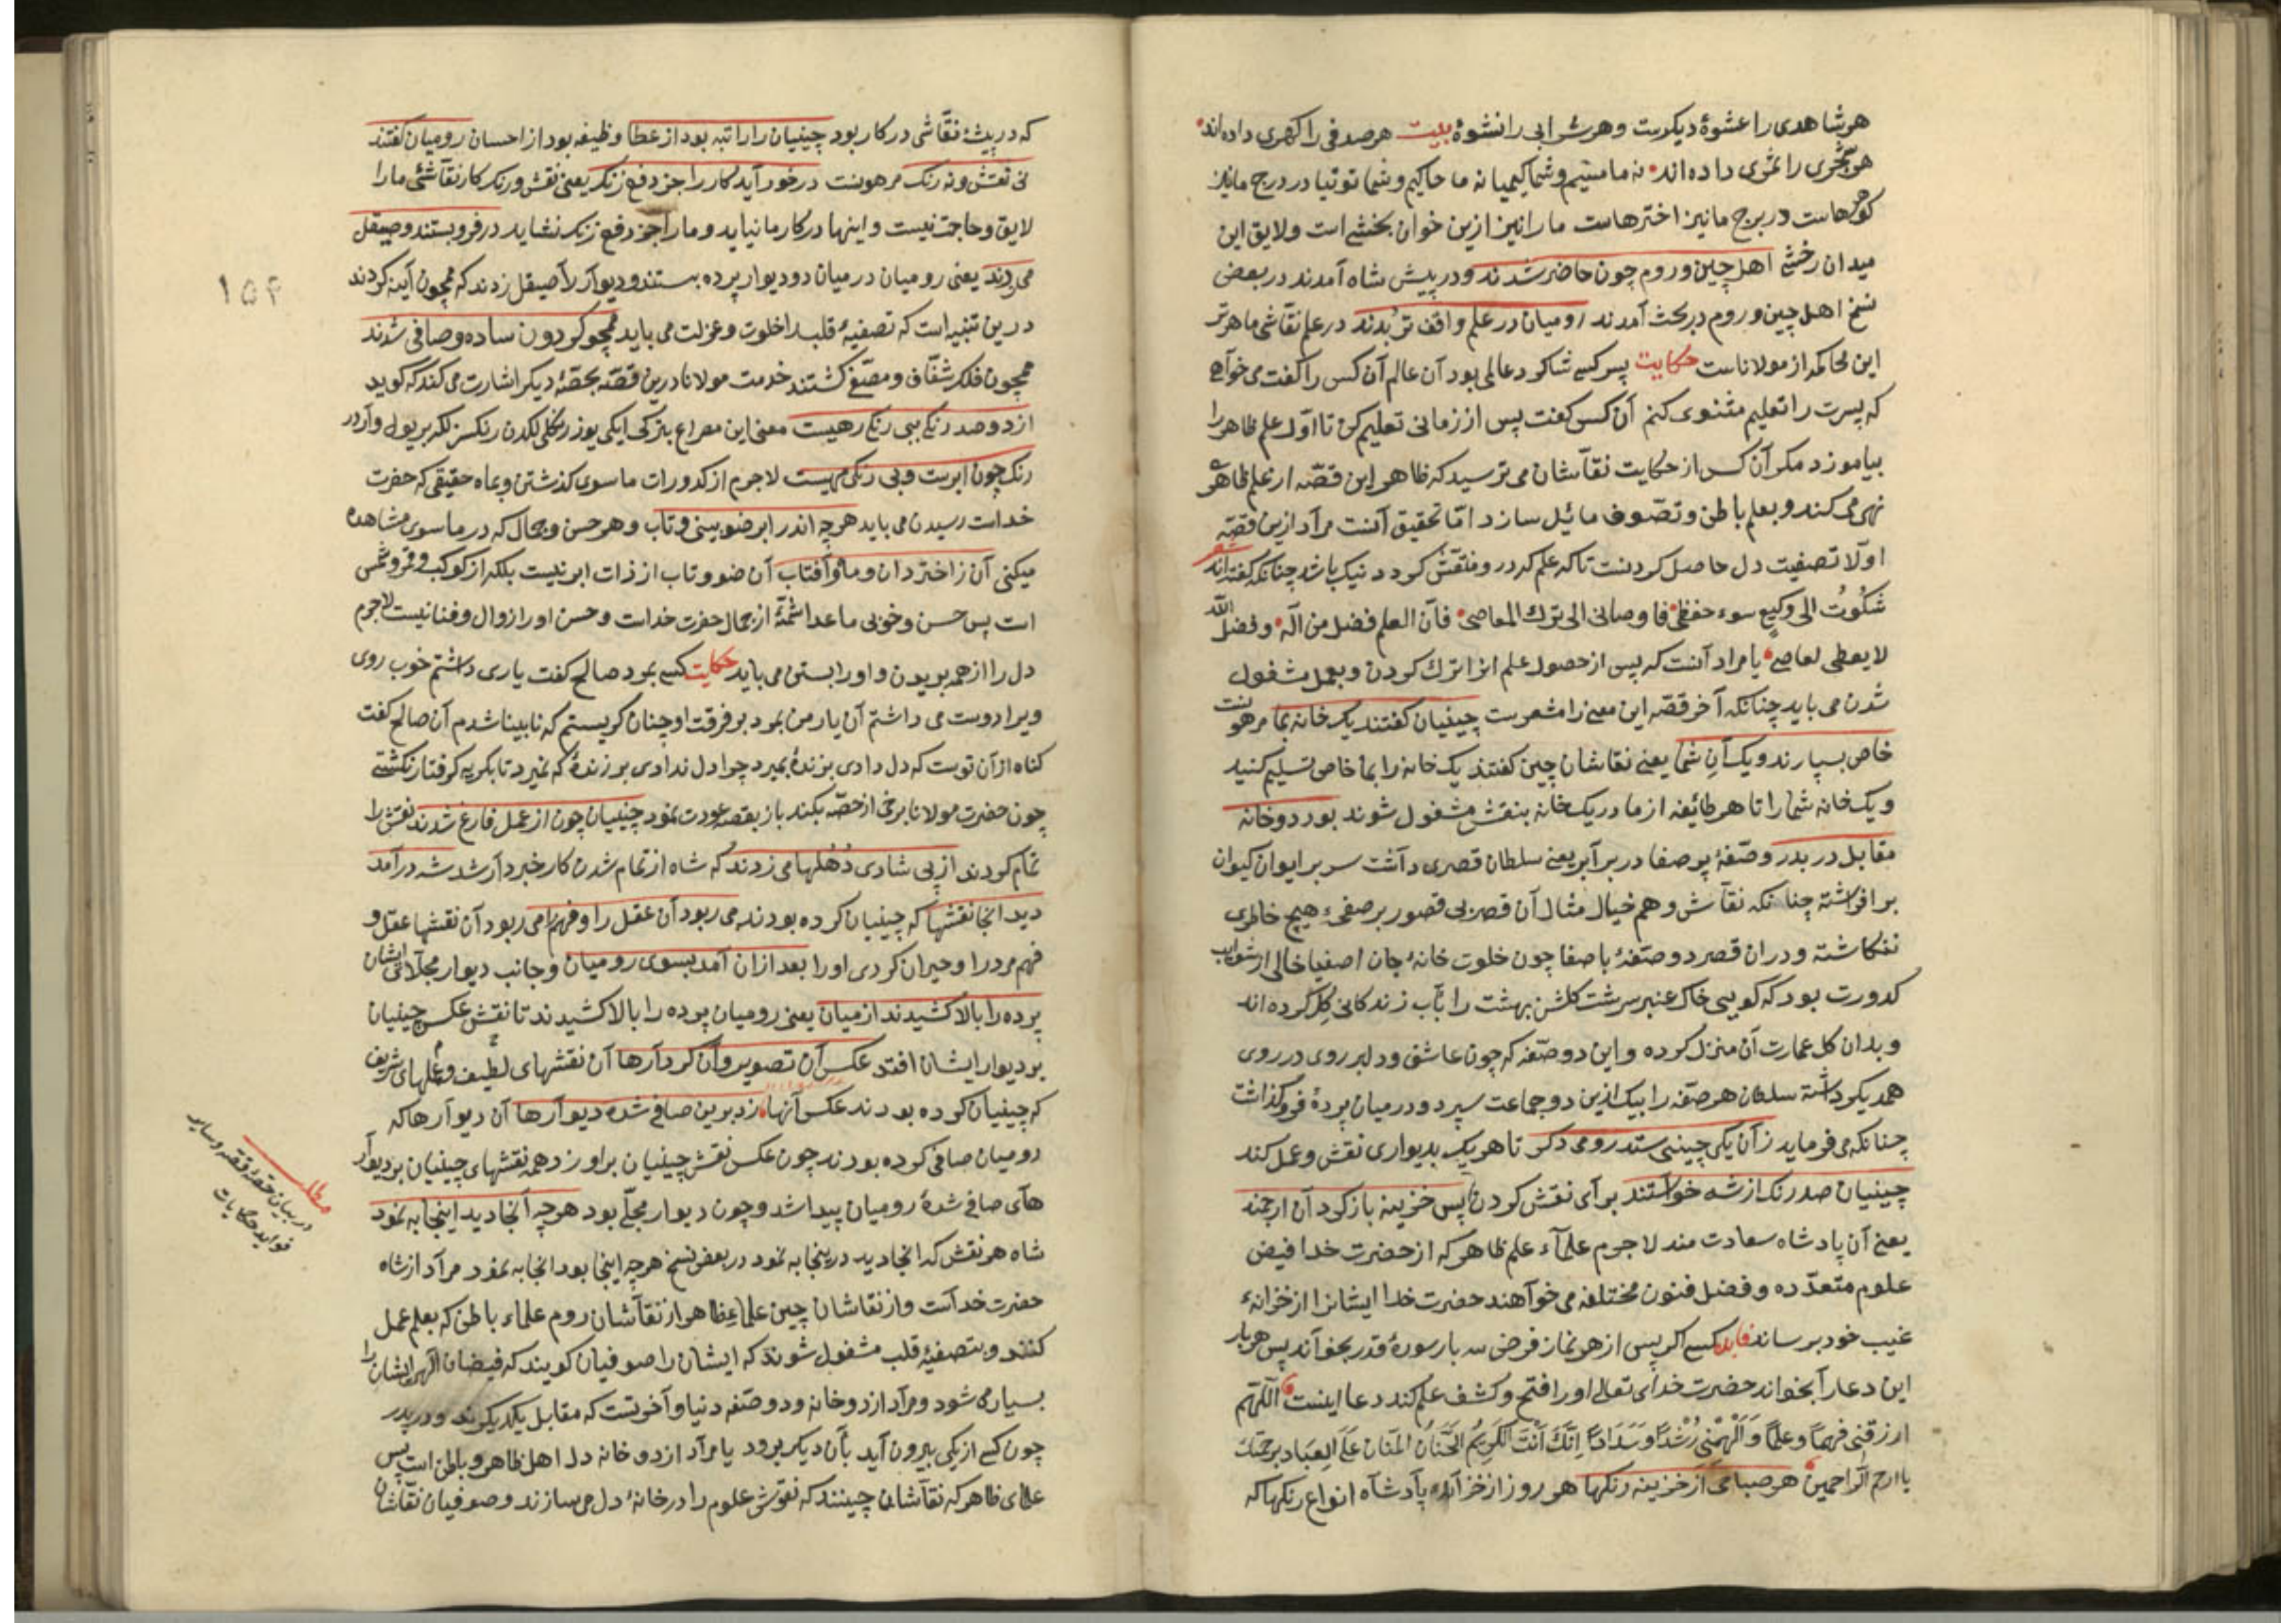 هر شاهدی را عشوهٔ دیکرست وهر شرابی را نشوهٔ بیت هر صدفی را کهری داده‌اند
هر شجری را ثمری داده‌اند نه ما مسیم وشما کیمیا نه ما خاکیم وشما توتیا در درج ما نیز
کوهرهاست در برج ما نیز اخترهاست ما را نیز ازین خوان بخشے است ولایق این
میدان رخشے اهل چین وروم چون حاضر شدند ودر پیش شاه آمدند در بعض
نسخ اهل چین وروم در بحث آمدند رومیان در علم واقف تر بدند در علم نقاشی ماهرتر
این محاکمه از مولاناست حکایت پسر کسے شاکرد عالمی بود آن عالم آن کس را کفت می خواهے
که پسرت را تعلیم مثنوی کنم آن کس کفت پس از زمانی تعلیم کن تا اول علم ظاهر را
بیاموزد مکر آن کس از حکایت نقاشان می ترسید که ظاهر این قصه از علم ظاهر
نهی می کند وبعلم باطن وتصوف مائل سازد اما تحقیق آنست مراد ازین قصه
اولا تصفیت دل حاصل کردنست تا که علم که درو منتقش کردد نیک باشد چنانکه کفته‌اند شعر
شکوت الی وکیع سوء حفظی فاوصانی الی ترك المعاصی فان العلم فضل من اله وفضل الله
لا یعطی لعاصے یا مراد آنست که پس از حصول علم انرا ترك کردن وبعمل مشغول
شدن می باید چنانکه آخر قصه این معنے را مشعرست چینیان کفتند یک خانه بما
خاص بسپارند ویک آن شما یعنے نقاشان چین کفتند یک خانه را بما خاص تسلیم کنید
ویک خانه شما را تا هر طائفه از ما در یک خانه بنقش مشغول شوند بود دو خانه
مقابل در بدر وصفهٔ پر صفا در برابر یعنے سلطان قصری داشت سر بر ایوان کیوان
بر افراشته چنانکه نقاش وهم خیال مثال آن قصر بی قصور بر صفحهٔ هیچ خاطری
ننکاشته ودران قصر دو صفهٔ با صفا چون خلوت خانهٔ جان اصفیا خالی از شوایب
کدورت بود که کویی خاک عنبر سرشت کلشن بهشت را بآب زندکانی کل کرده اند
وبدان کل عمارت آن منزل کرده واین دو صفه که چون عاشق ودلبر روی در روی
همدیکر داشته سلطان هر صفه را بیک ازین دو جماعت سپرد ودر میان پردهٔ فرو کذاشت
چنانکه می فرماید زان یکی چینی ستد رومی دکر تا هر یک بدیواری نقش وعمل کند
چینیان صد رنک از شه خواستند برای نقش کردن پس خزینه باز کرد آن ارجمند
یعنے آن پادشاه سعادت مند لاجرم علماء علم ظاهر که از حضرت خدا فیض
علوم متعدده وفضل فنون مختلفه می خواهند حضرت خدا ایشانرا از خزانهٔ
غیب خود برساند فایده کسے اکر پس از هر نماز فرض سه بار سورهٔ قدر بخواند پس هر بار
این دعا را بخواند حضرت خدای تعالی او را فتح وکشف علم کند دعا اینست اللهم
ارزقنی فهما وعلما وَاَلْهِمْنِی رُشْدًا وَسَدَادًا اِنَّكَ اَنْتَ الْكَرِیمُ الْحَنَّانُ الْمَنَّانُ عَلَى الْعِبَادِ برحمتك
یا ارحم الراحمین هر صباحی از خزینه رنکها هر روز از خزانهٔ پادشاه انواع رنکها که
که در پیشهٔ نقاشی در کار بود چینیان را راتبه بود از عطا وظیفه بود از احسان رومیان کفتند
نی نقش ونه رنک در خورد آید کار را جز دفع زنک یعنی نقش ورنک کار نقاشی ما را
لایق وحاجت نیست واینها در کار ما نیاید وما را جز دفع زنک نشاید در فرو بستند وصیقل
می زدند یعنی رومیان در میان دو دیوار پرده بستند ودیوار را صیقل زدند که همچون آینه کردند
درین تنبیه است که تصفیهٔ قلب را خلوت وعزلت می باید همچو کردون ساده وصافی شدند
همچون فلک شفاف ومصفے کشتند خدمت مولانا درین قصه بحصهٔ دیکر اشارت می کند که کوید
از دو صد رنکے ببی رنکے رهیست معنی این مصراع بترکی ایکی یوز رنکلی لکدن رنکسزلکه بر یول واردر
رنک چون ابرست وبی رنکی مهیست لاجرم از کدورات ما سوی کذشتن وبماه حقیقی که حضرت
خداست رسیدن می باید هر چه اندر ابر ضو بینی وتاب وهر حسن وجمال که در ما سوی مشاهده
میکنی آن ز اختر دان وماه وآفتاب آن ضو وتاب از ذات ابر نیست بلکه از کوکب وقمر وشمس
است پس حسن وخوبی ما عدا شمهٔ از جمال حضرت خداست وحسن او را زوال وفنا نیست لاجرم
دل را از همه بریدن واو را بستن می باید حکایت کسے بمرد صالح کفت یاری داشتم خوب روی
ویرا دوست می داشتم آن یار من بمرد بر فرقت او چنان کریستم که نابینا شدم آن صالح کفت
کناه از آن تست که دل دادی بزندهٔ بمیرد چرا دل ندادی بر زندهٔ که نمیرد تا بکریه کرفتار نکشتے
چون حضرت مولانا برخی از حصه بکند باز بقصه عودت نمود چینیان چون از عمل فارغ شدند نقش را
تمام کردند از پی شادی دهلها می زدند که شاه از تمام شدن کار خبردار شد شه در آمد
دید آنجا نقشها که چینیان کرده بودند می ربود آن عقل را وفهم را می ربود آن نقشها عقل و
فهم مرد را وحیران کردی او را بعد ازان آمد بسوی رومیان وجانب دیوار مجلای ایشان
پرده را بالا کشیدند از میان یعنی رومیان پرده را بالا کشیدند تا نقش عکس چینیان
بر دیوار ایشان افتد عکس آن تصویر وآن کردارها آن نقشهای لطیف وعملهای شریف
که چینیان کرده بودند عکس آنها زد برین صافی شده دیوارها آن دیوارها که
رومیان صافی کرده بودند چون عکس نقش چینیان بر او زد همه نقشهای چینیان بر دیوار
های صافی شدهٔ رومیان پیدا شد وچون دیوار مجلے بود هر چه آنجا دید اینجا به نمود
شاه هر نقش که آنجا دید درینجا به نمود در بعض نسخ هر چه اینجا بود آنجا به نمود مراد از شاه
حضرت خداست واز نقاشان چین علماء ظاهر از نقاشان روم علماء باطن که بعلم عمل
کنند وبتصفیهٔ قلب مشغول شوند که ایشان را صوفیان کویند که فیضان الهی ایشان را
بسیار می شود ومراد از دو خانه ودو صفه دنیا وآخرتست که مقابل یکدیکرند ودر بدر
چون کسے از یکی بیرون آید بآن دیکر برود یا مراد از دو خانه دل اهل ظاهر وباطن است پس
علمای ظاهر که نقاشان چینند که نقوش علوم را در خانهٔ دل می سازند وصوفیان نقاشان
۱۵۴
مطلب
در بیان حصهٔ قصه وسایر
فواید حکایات